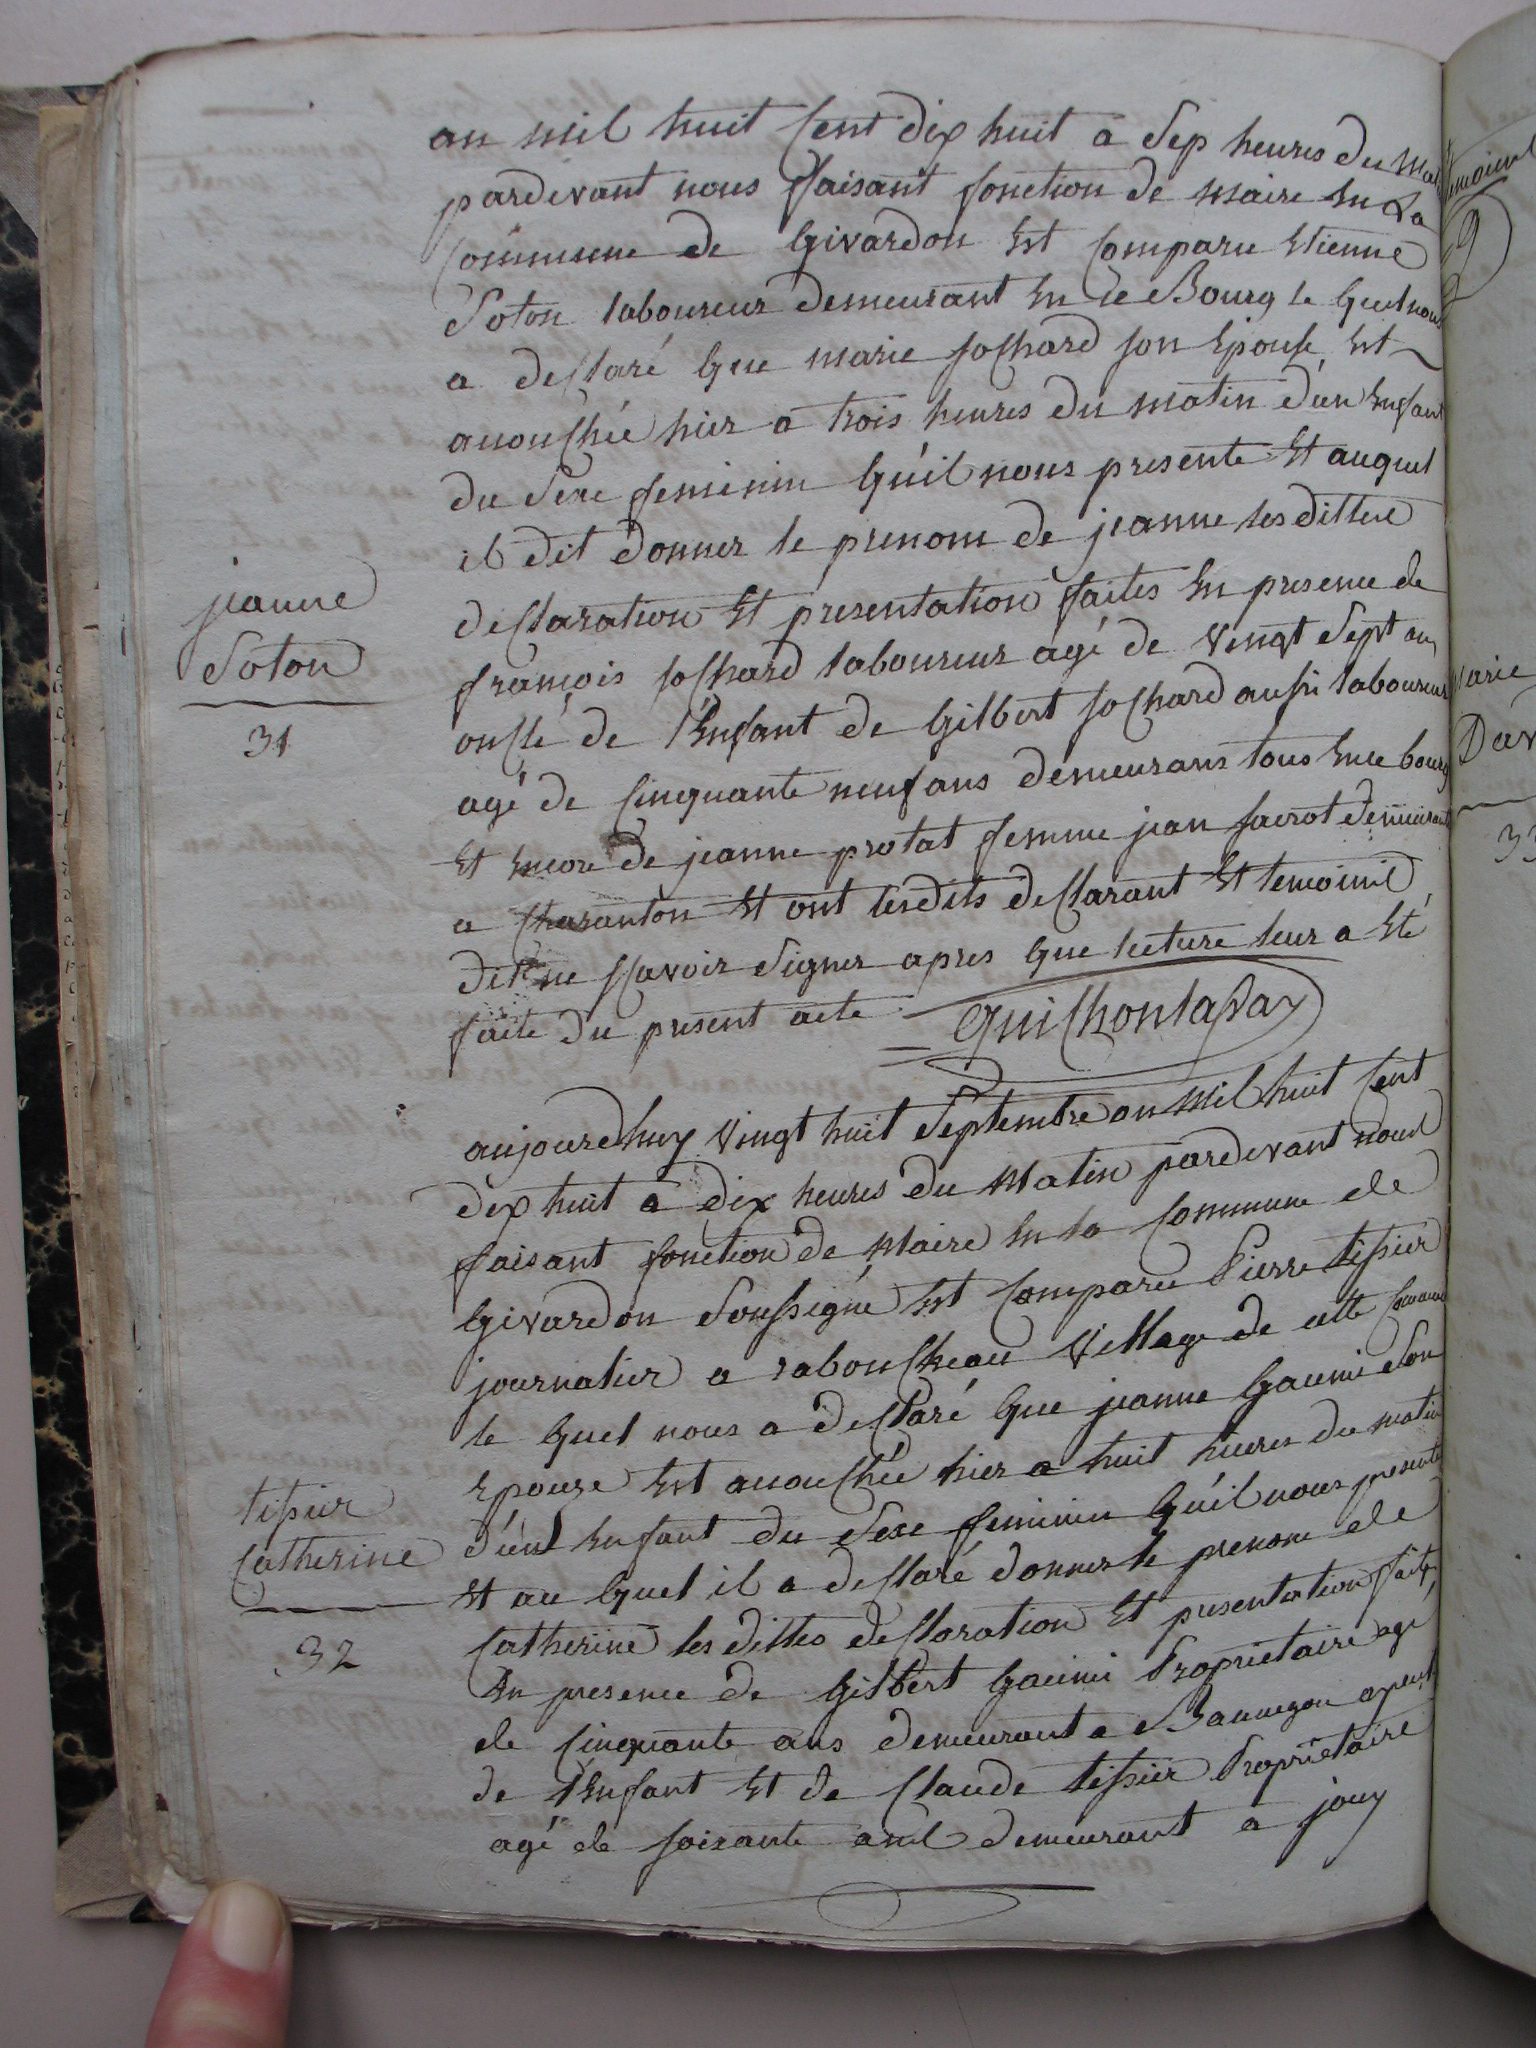 an mil huit Cent dix huit a Sep heures du Mat
pardevant nous faisant fonction de Maire En La
Commune de Givardon Est Comparu Etienne
Soton laboureur demeurant En ce Bourg le quel nous
a desclaré que marie jochard son Epouse Est
accouchée hier a trois heures du matin d'un Enfant
du Sexe feminin qu'il nous presente Et auquel
il dit donner le prenom de jeanne les dittes
jeanne
Soton
31
desclaration Et presentation faites En presence de
françois jochard laboureur agé de vingt Sept ans
oncle de l'Enfant de Gilbert jochard aussi laboureur
agé de Cinquante neuf ans demeurans tous En ce bourg
Et Encore de jeanne protat femme jean demeurant
a Charanton Et ont lesdits desclarant Et temoins
dit ne scavoir Signer apres que lecture leur a Eté
faite du present acte
aujourdhuy vingt huit Septembre an Mil huit Cent
dix huit a dix heures du Matin pardevant nous
faisant fonction de Maire En la Commune de
Givardon Soussigné Est Comparu Pierre tissier
journalier a rabouscheau Village de cette Commune
le quel nous a desclaré que jeanne Son
Epouze Est accouchée hier a huit heures du matin
d'un Enfant du Sexe feminin qu'il nous presente
Et au quel il a desclaré donner le prenom de
tissier
Catherine
32
Catherine les dittes desclaration Et presentation faites
En presence de Gilbert Proprietaire agé
de Cinquante ans demeurant a
de l'Enfant Et de Claude tissier Proprietaire
agé de soixante ans demeurant a jouy
marie
33